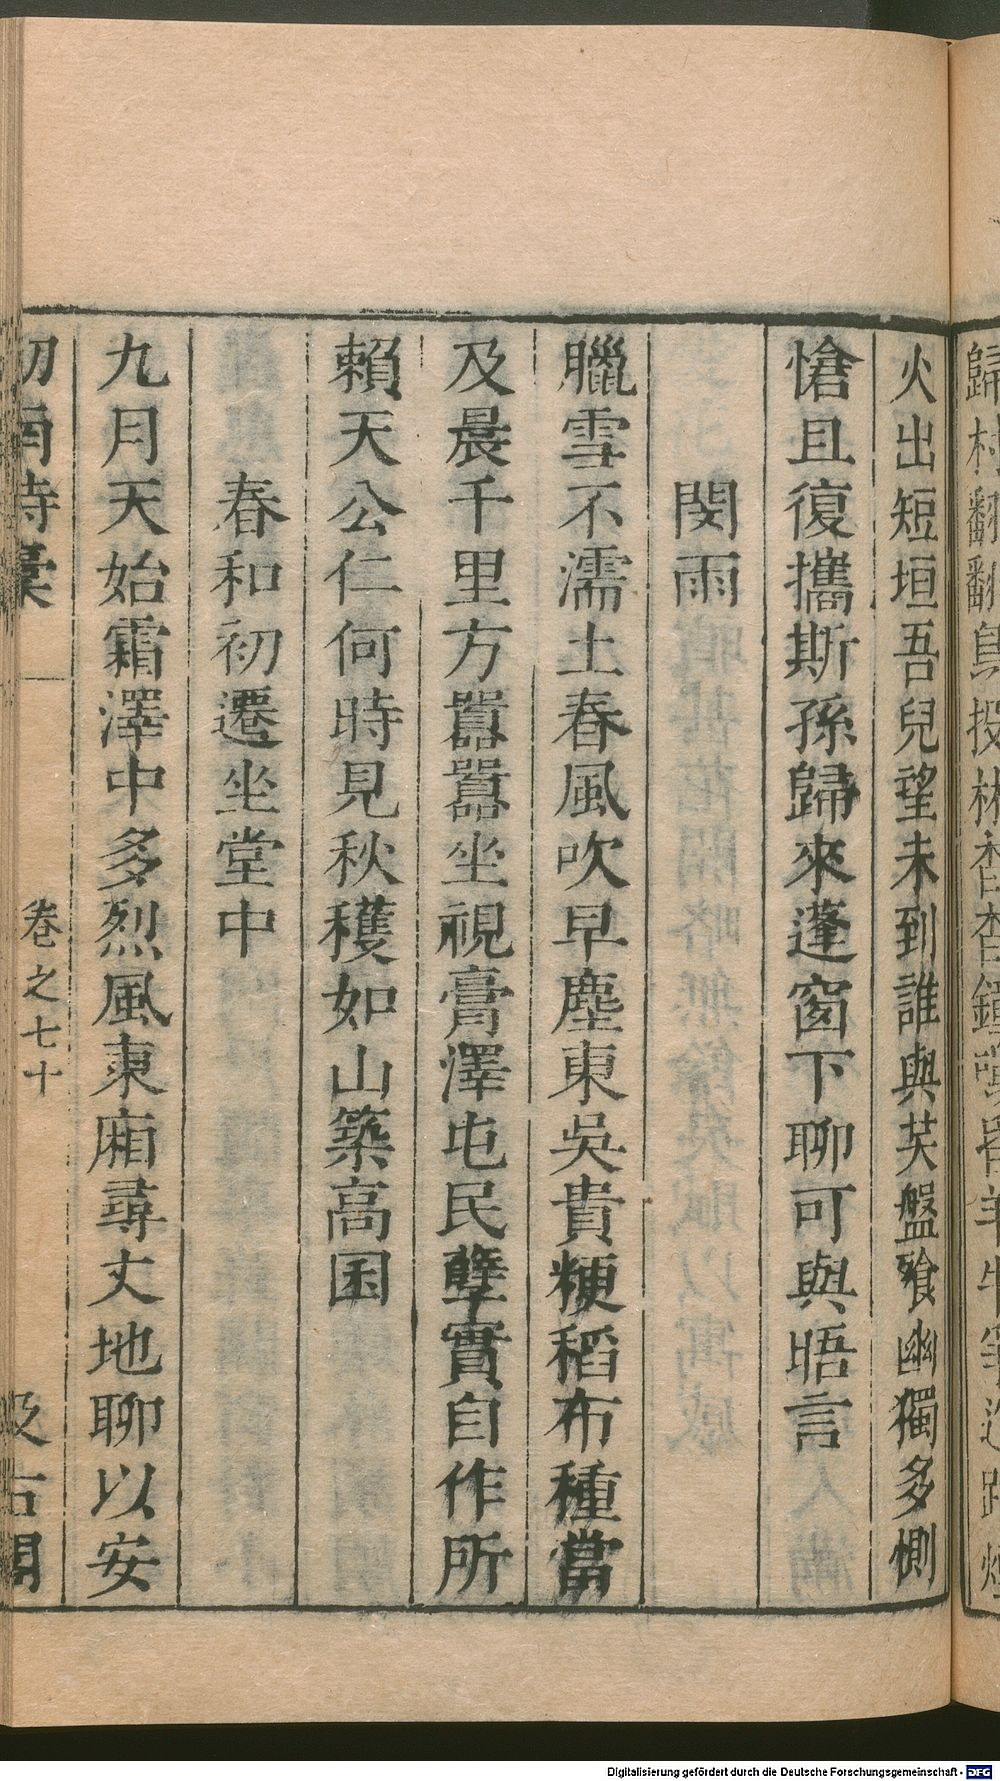 歸村翻翻鳥投林杳杳鐘
火出短垣吾兒望未到誰與共盤飱幽獨多惻
愴且復攜斯孫歸來蓬窗下聊可與晤言
閔雨
臘雪不濡土春風吹早塵東吳貴粳稻布種當
及晨千里方囂囂坐視膏澤屯民孽實自作所
賴天公仁何時見秋穫如山築高囷
春和初遷坐堂中
九月天始霜澤中多烈風東廂尋丈地聊以安
劍南詩稾 卷之七十 汲古閣
Digitalisierung gefördert durch die Deutsche Forschungsgemeinschaft - DFG